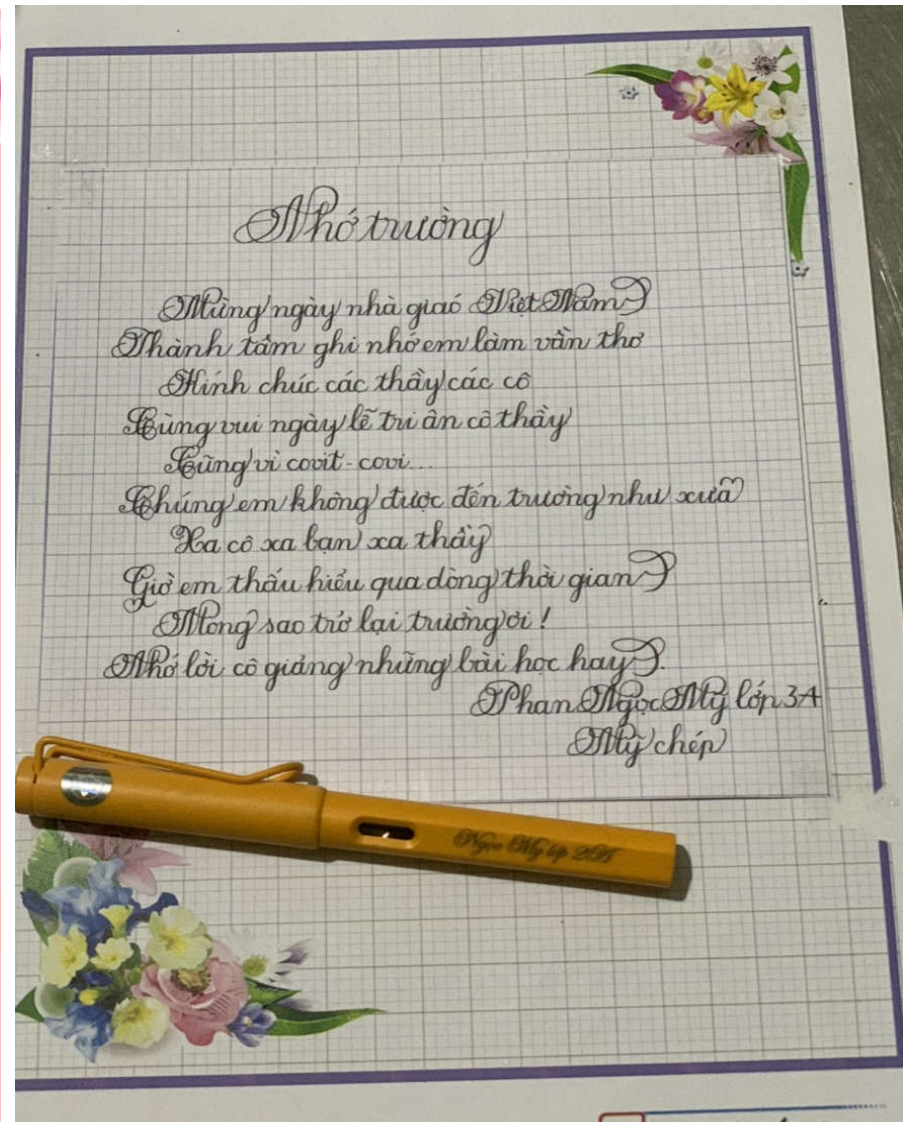 Nhớ trường
Mừng ngày nhà giaó Việt Nam
Thành tâm ghi nhớ em làm vần thơ
Kính chúc các thầy các cô
Cùng vui ngày lễ tri ân cô thầy
Cũng vì covit - covi...
Chúng em không được đến trường như xưa
Xa cô xa bạn xa thầy
Giờ em thấu hiểu qua dòng thời gian
Mong sao trở lại trường ơi!
Nhớ lời cô giảng những bài học hay.
Phan Ngọc Mỹ lớp 3A
Mỹ chép
Ngọc Mỹ lớp 2A